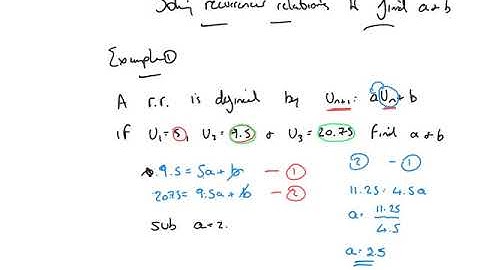 Solving recurrence relations to find a & b
Example ①
A r.r. is defined by Uₙ₊₁ = aUₙ + b
if U₁ = 5, U₂ = 9.5 & U₃ = 20.75 find a & b
9.5 = 5a + b — ①
20.75 = 9.5a + b — ②
sub a = 2.
② - ①
11.25 = 4.5a
a = 11.25 / 4.5
a = 2.5